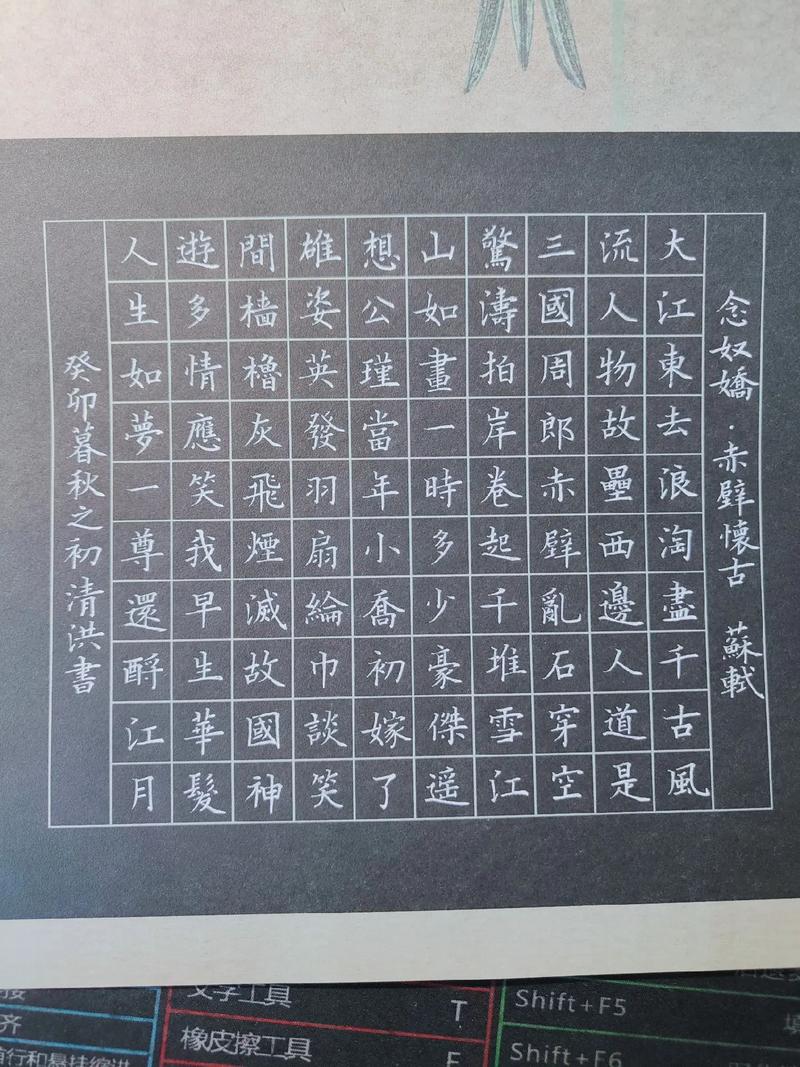 念奴嬌·赤壁懷古 蘇軾
大江東去浪淘盡千古風
流人物故壘西邊人道是
三國周郎赤壁亂石穿空
驚濤拍岸卷起千堆雪江
山如畫一時多少豪傑遥
想公瑾當年小喬初嫁了
雄姿英發羽扇綸巾談笑
間檣櫓灰飛煙滅故國神
遊多情應笑我早生華髮
人生如夢一尊還酹江月
癸卯暮秋之初清洪書
齐
文字工具 T
Shift+F5
橡皮擦工具 E
Shift+F6